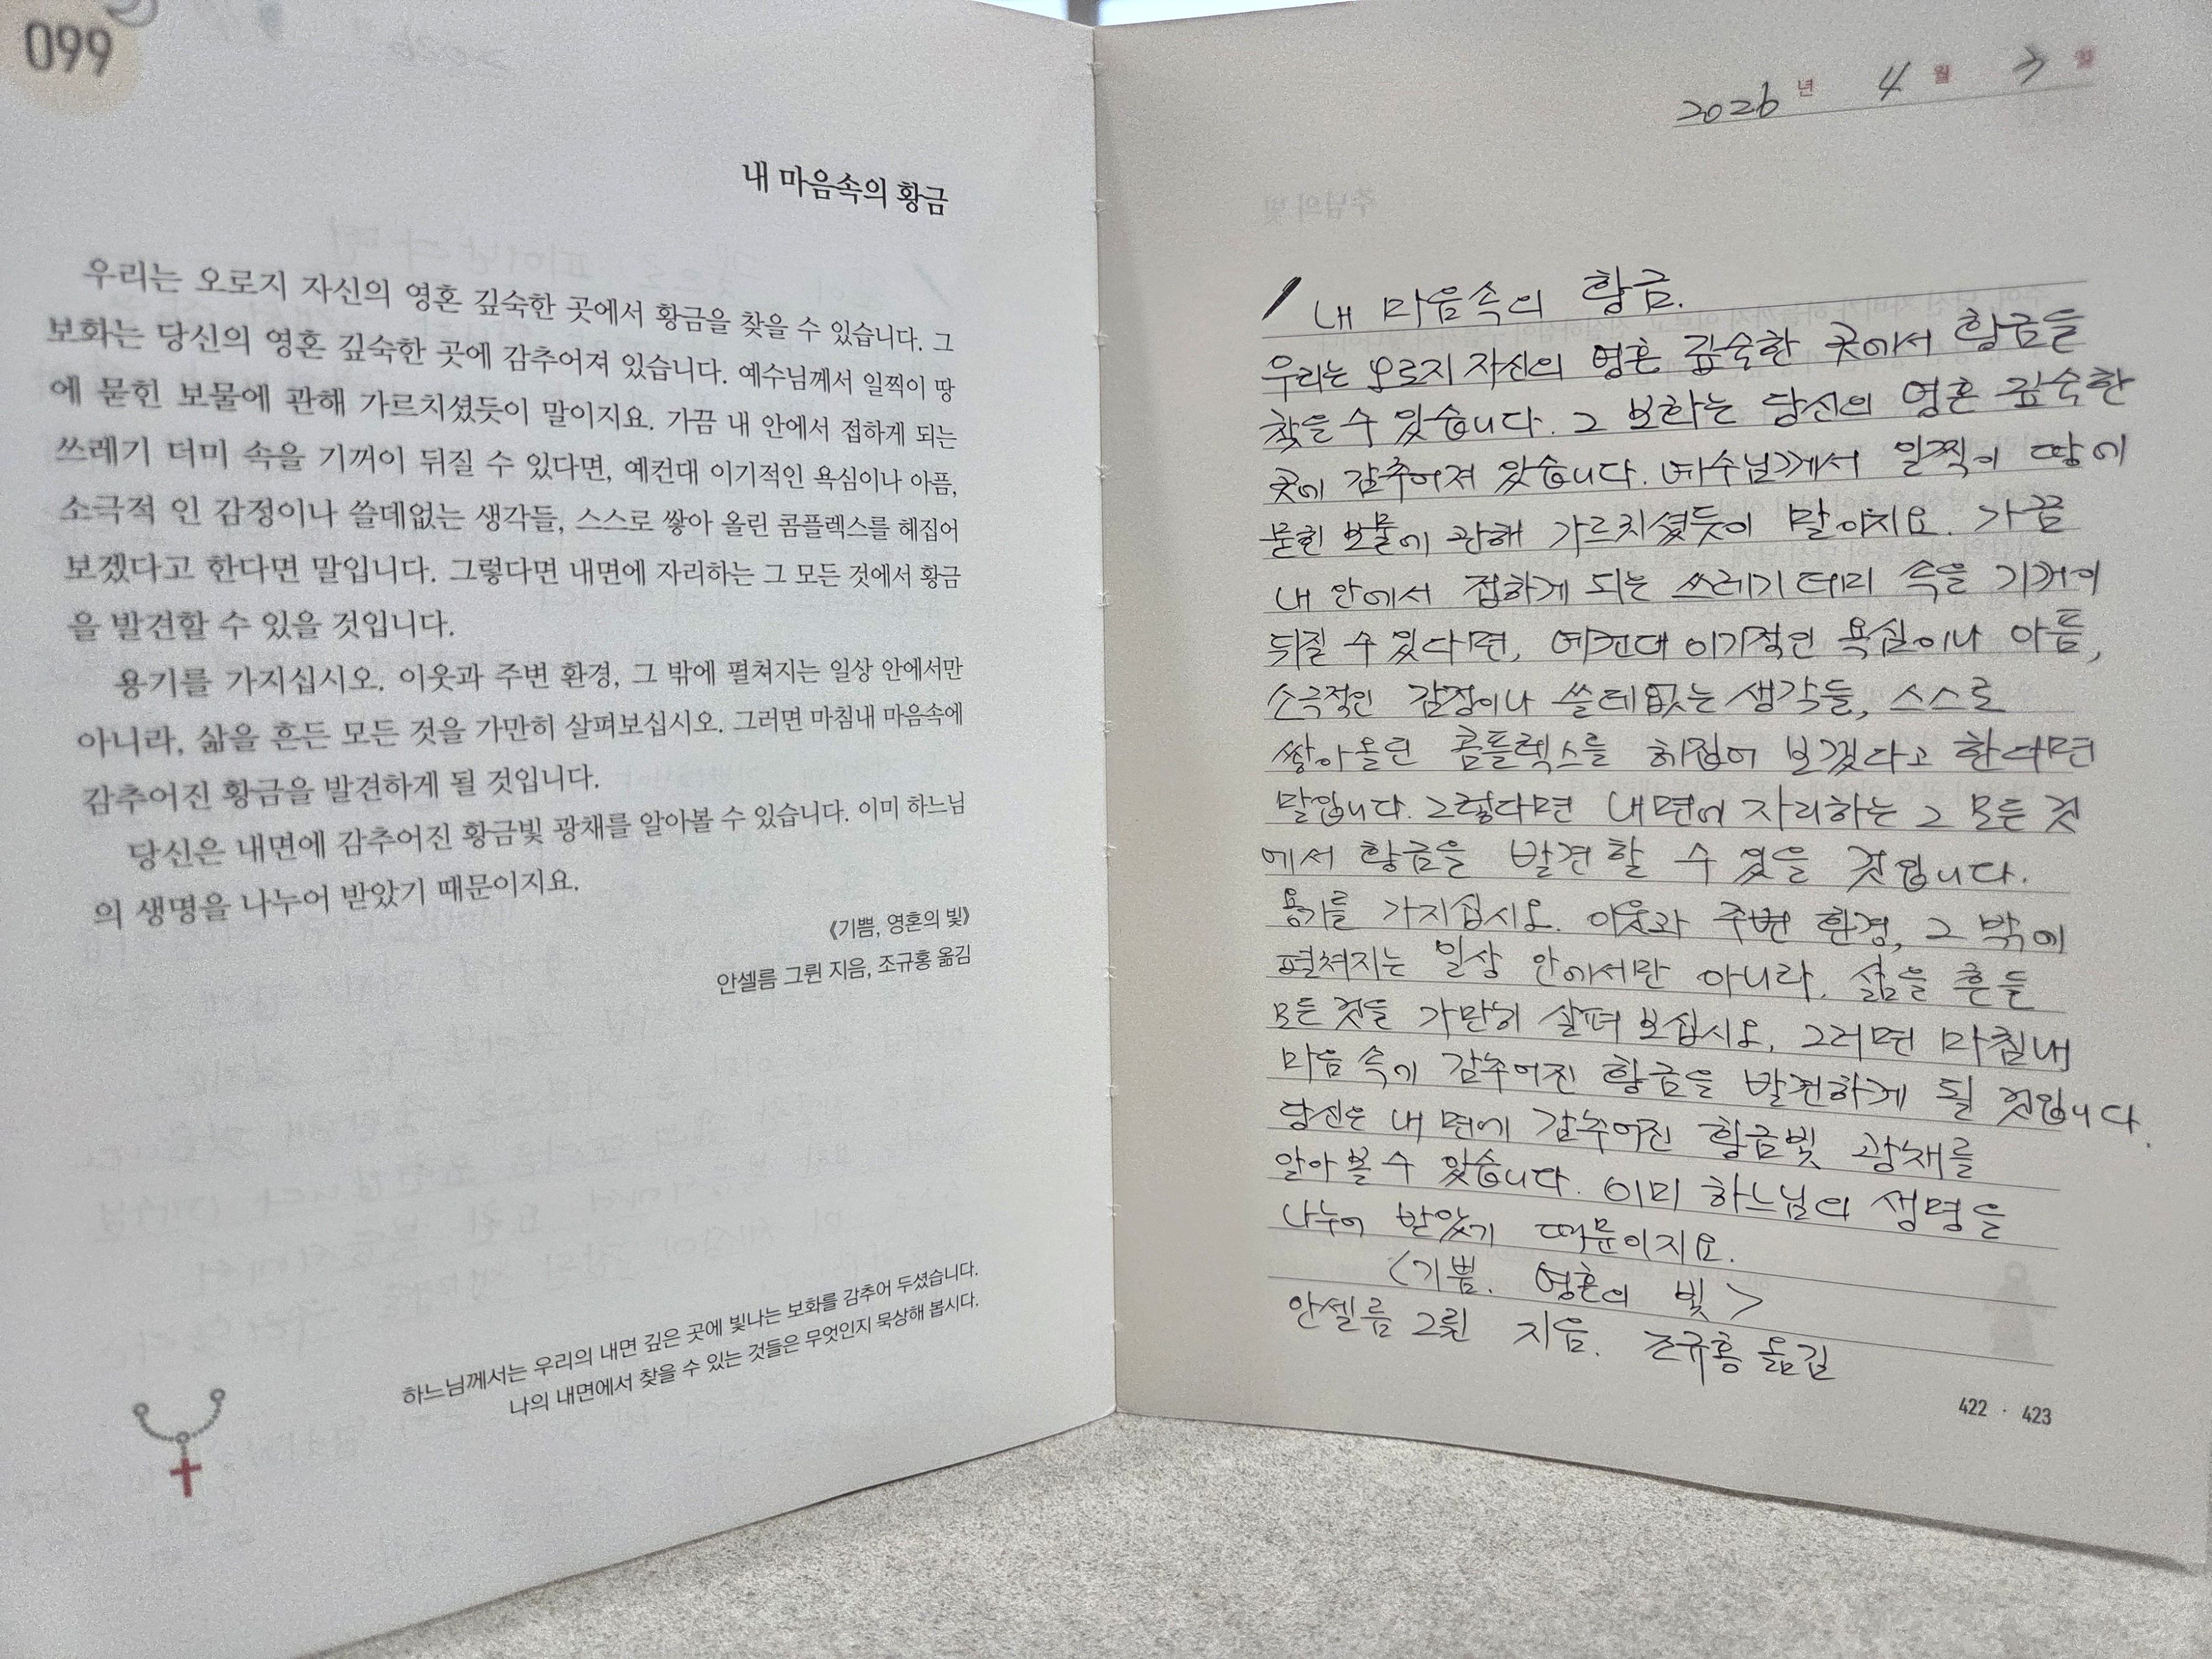 099
내 마음속의 황금
우리는 오로지 자신의 영혼 깊숙한 곳에서 황금을 찾을 수 있습니다. 그
보화는 당신의 영혼 깊숙한 곳에 감추어져 있습니다. 예수님께서 일찍이 땅
에 묻힌 보물에 관해 가르치셨듯이 말이지요. 가끔 내 안에서 접하게 되는
쓰레기 더미 속을 기꺼이 뒤질 수 있다면, 예컨대 이기적인 욕심이나 아픔,
소극적 인 감정이나 쓸데없는 생각들, 스스로 쌓아 올린 콤플렉스를 헤집어
보겠다고 한다면 말입니다. 그렇다면 내면에 자리하는 그 모든 것에서 황금
을 발견할 수 있을 것입니다.
용기를 가지십시오. 이웃과 주변 환경, 그 밖에 펼쳐지는 일상 안에서만
아니라, 삶을 흔든 모든 것을 가만히 살펴보십시오. 그러면 마침내 마음속에
감추어진 황금을 발견하게 될 것입니다.
당신은 내면에 감추어진 황금빛 광채를 알아볼 수 있습니다. 이미 하느님
의 생명을 나누어 받았기 때문이지요.
《기쁨, 영혼의 빛》
안셀름 그륀 지음, 조규홍 옮김
하느님께서는 우리의 내면 깊은 곳에 빛나는 보화를 감추어 두셨습니다.
나의 내면에서 찾을 수 있는 것들은 무엇인지 묵상해 봅시다.
2026 년 4 월 일
내 마음속의 황금.
우리는 오로지 자신의 영혼 깊숙한 곳에서 황금을
찾을 수 있습니다. 그 보화는 당신의 영혼 깊숙한
곳에 감추어져 있습니다. 예수님께서 일찍이 땅에
묻힌 보물에 관해 가르치셨듯이 말이지요. 가끔
내 안에서 접하게 되는 쓰레기 더미 속을 기꺼이
뒤질 수 있다면, 예컨대 이기적인 욕심이나 아픔,
소극적인 감정이나 쓸데없는 생각들, 스스로
쌓아올린 콤플렉스를 헤집어 보겠다고 한다면
말입니다. 그렇다면 내면에 자리하는 그 모든 것
에서 황금을 발견할 수 있을 것입니다.
용기를 가지십시오. 이웃과 주변 환경, 그 밖에
펼쳐지는 일상 안에서만 아니라. 삶을 흔든
모든 것을 가만히 살펴 보십시오. 그러면 마침내
마음 속에 감추어진 황금을 발견하게 될 것입니다.
당신은 내면에 감추어진 황금빛 광채를
알아 볼 수 있습니다. 이미 하느님의 생명을
나누어 받았기 때문이지요.
<기쁨. 영혼의 빛>
안셀름 그륀 지음. 조규홍 옮김
422 · 423